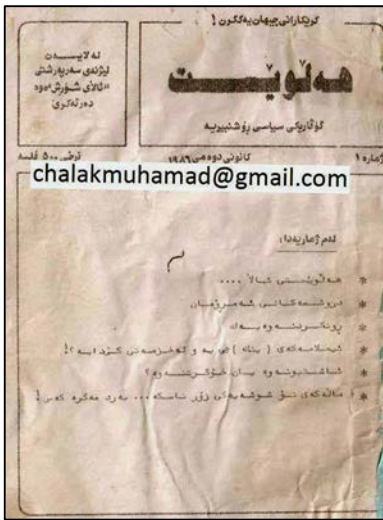 کرێکارانی جیهان یەکگرن !
لە لایــەن
لیژنەی سەرپەرشتی
«ئاڵای شۆرش»ەوە
دەرئەکرێ
هەڵوێست
گۆڤارێکی سیاسی ڕۆشنبیریە
ژمارە ١
کانونی دوەمی ١٩٨٦
نرخی ٥٠٠ فلسە
chalakmuhamad@gmail.com
لەم ژمارەیەدا :
* هەڵوێستی ئاڵا ....
* دروشمەکانی ئەمڕۆمان
* ڕونکردنەوە یەک
* ئیسلامەکەی ( یناە )ی یە و لەخزمەتی کێدایە ؟!
* ئاشتبونەوە یان خۆگرتنەوە ؟
* ماڵەکەی تۆ شوشەیەکی زۆر ناسکە ... بەرد مەگرە کەس !